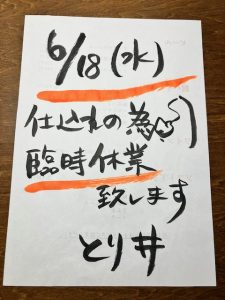 6/18(水)
仕込れの為
臨時休業
致します
とり井